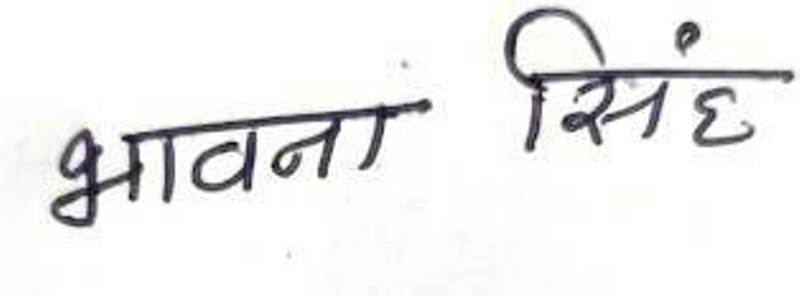 भावना सिंह